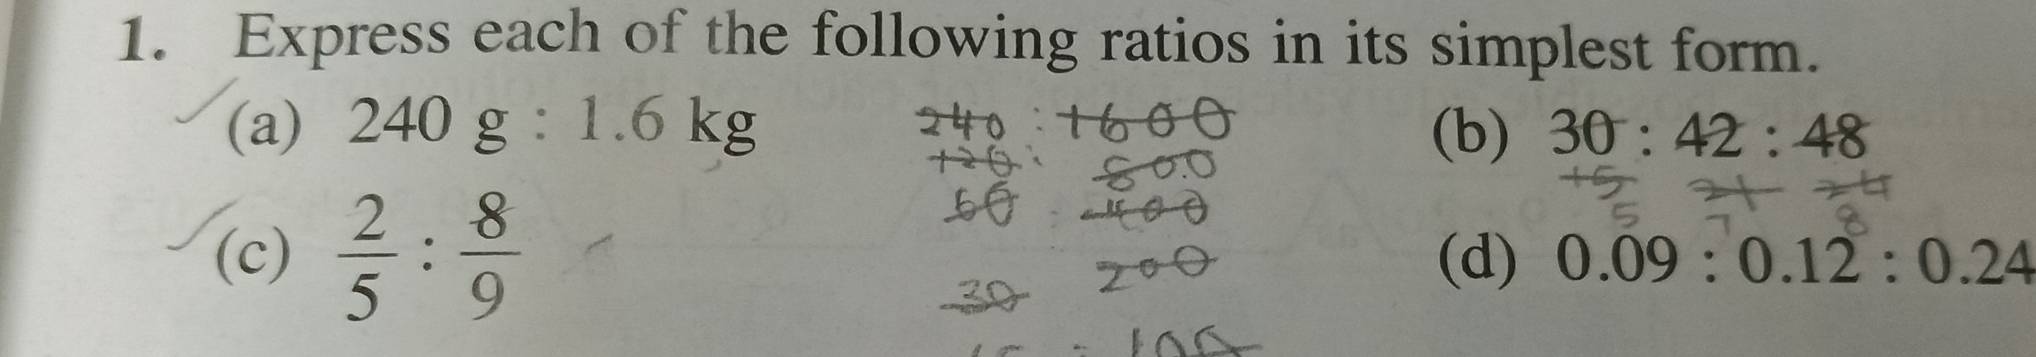 1. Express each of the following ratios in its simplest form.
(a) 240 g : 1.6 kg 240 : 1600 (b) 30 : 42 : 48
120 : 800 15 21 24
60 : 400 5 7 8
(c) 2/5 : 8/9 (d) 0.09 : 0.12 : 0.24
30 200
: 100